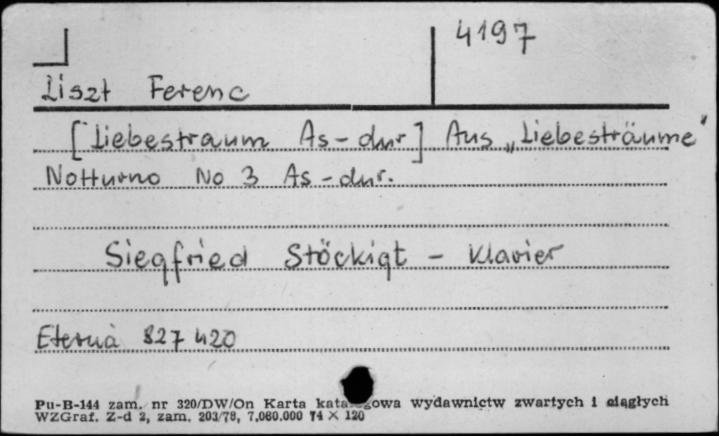 4197
Liszt Ferenc
[Liebestraum As-dur] Aus „Liebesträume"
Notturno No 3 As-dur.
Siegfried Stöckigt - Klavier
Eterna 827 420
Pu-B-144 zam. nr 320/DW/On Karta katalogowa wydawnictw zwartych i ciągłych
WZGraf. Z-d 2, zam. 203/78, 7,060.000 74 × 120